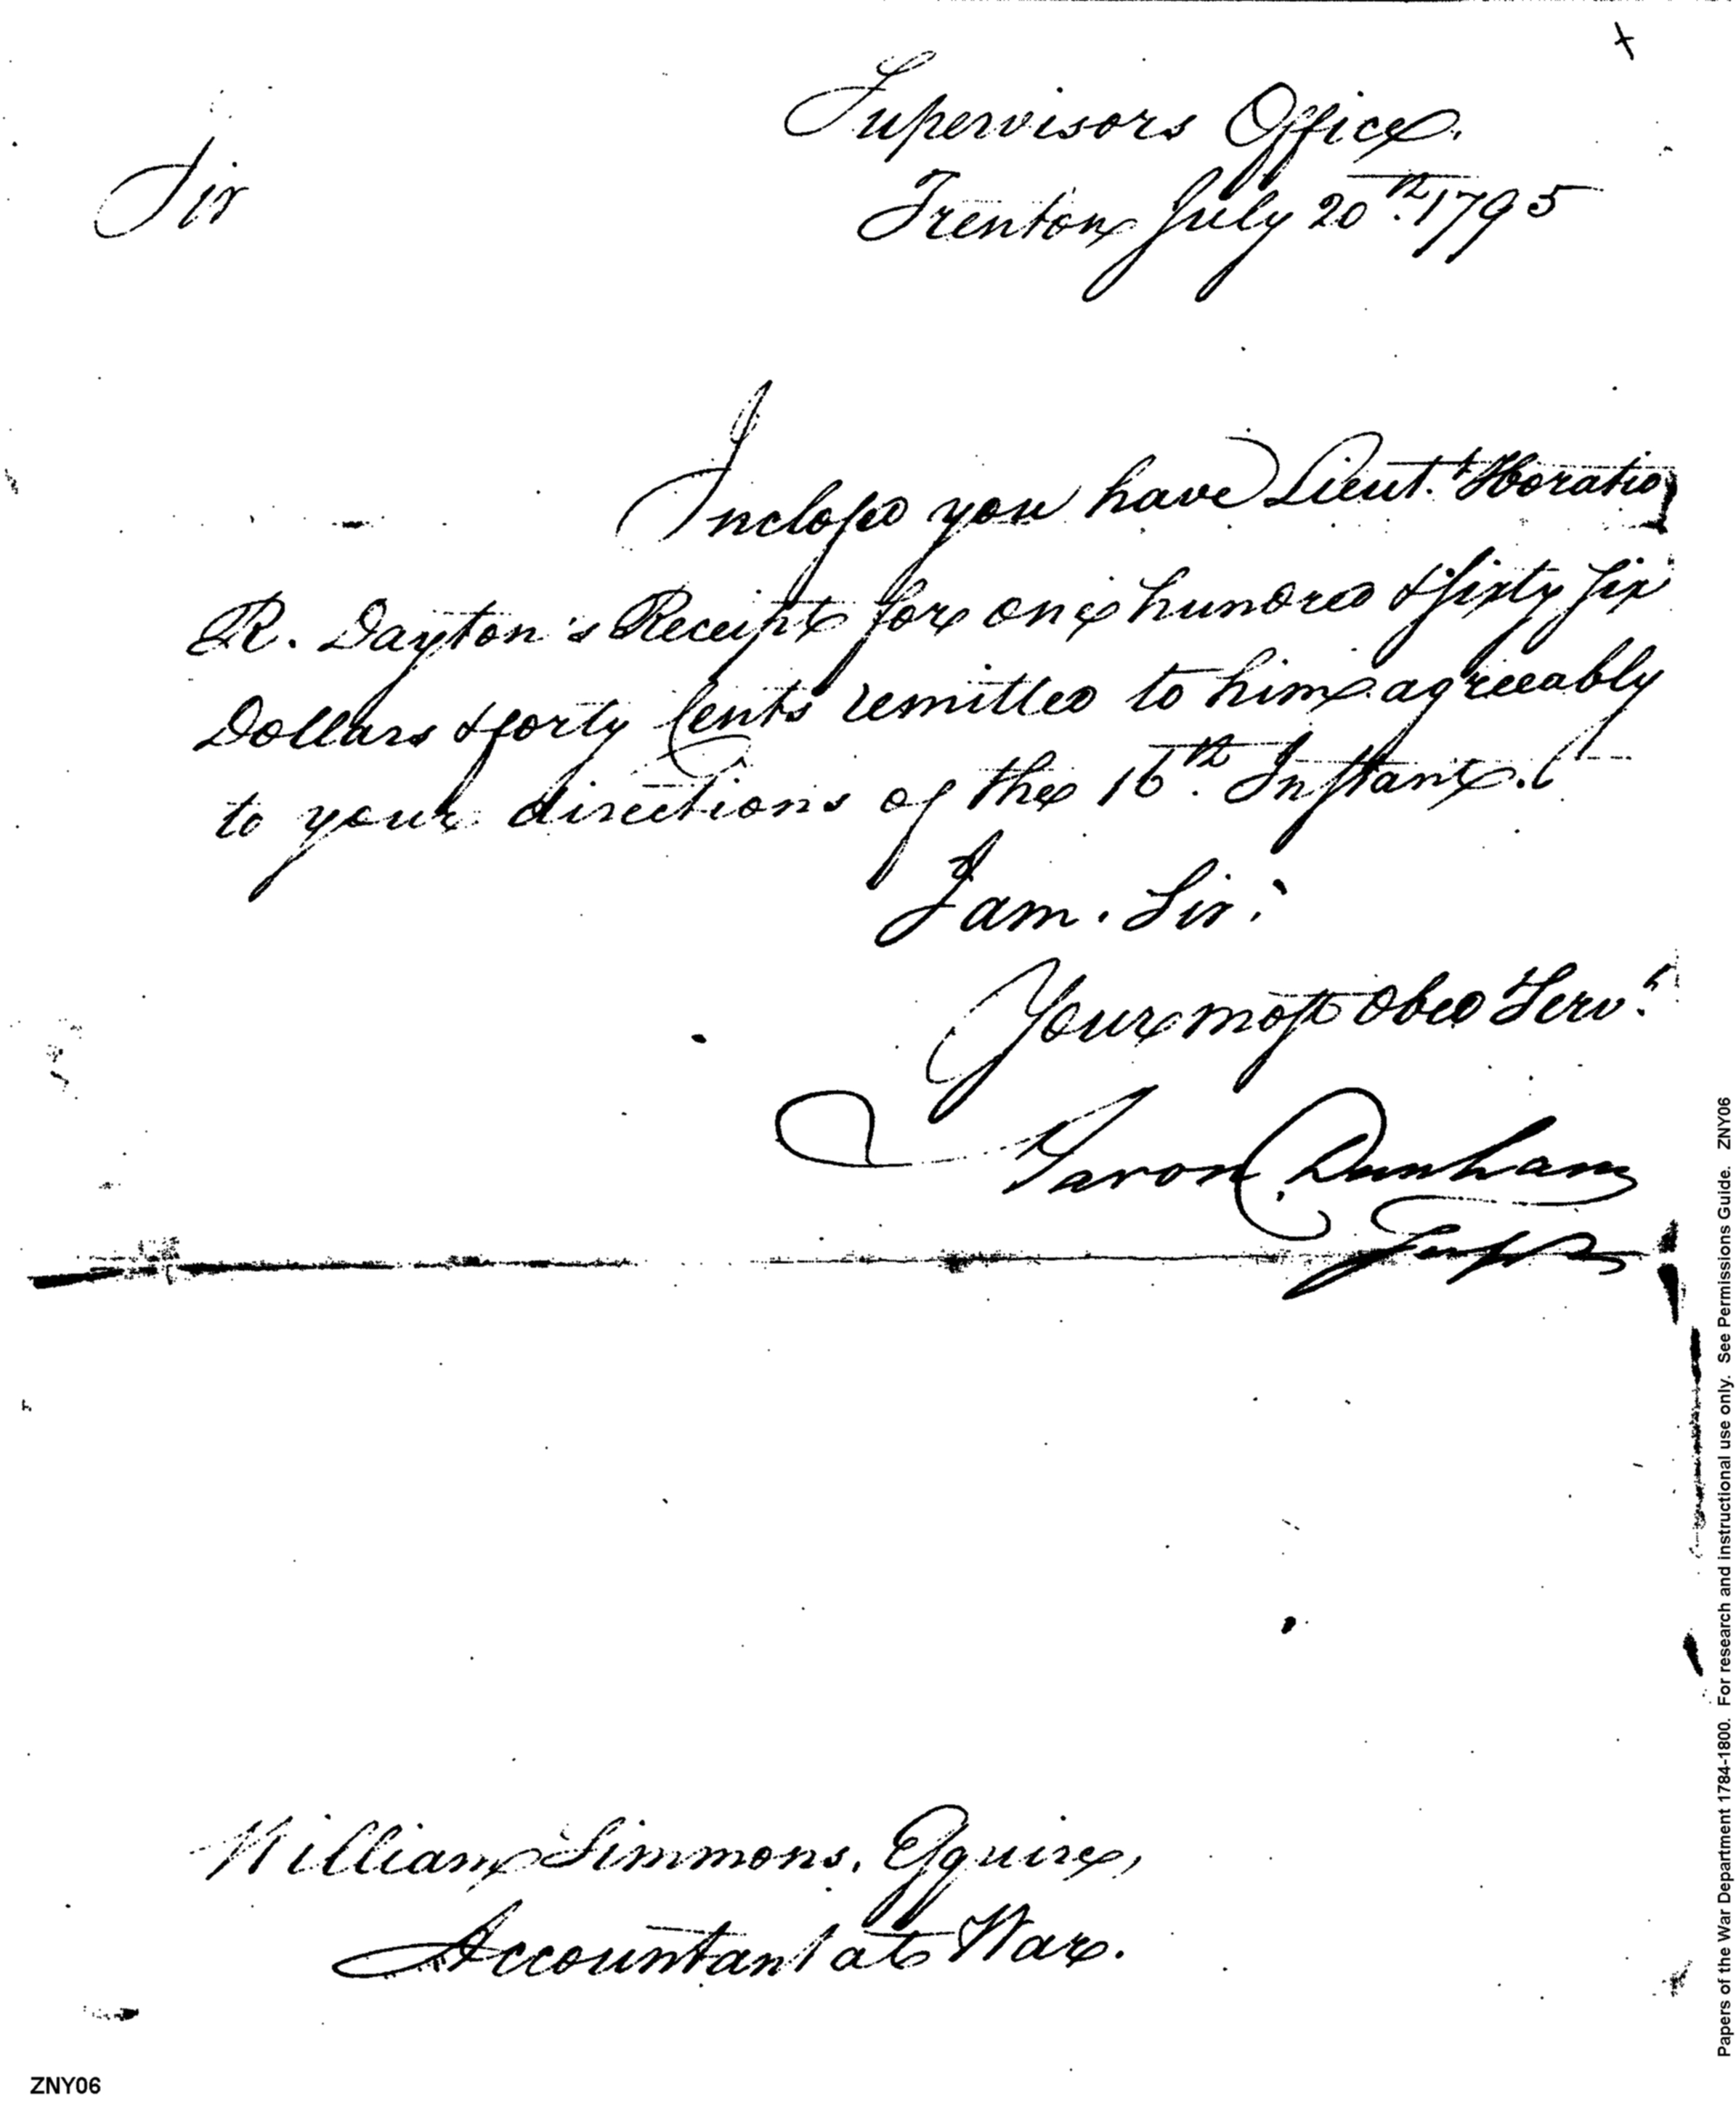 Supervisors Office.
Trenton July 20th. 1795
Sir
Inclosed you have Lieut. Horatio
R. Dayton's Receipt for one hundred & sixty six
Dollars & forty Cents remitted to him agreeably
to your directions of the 16th. Instant.
I am. Sir.
Your most Obed Servt.
Aaron Dunham
Supr
William Simmons. Esquire,
Accountant at War.
ZNY06
Papers of the War Department 1784-1800. For research and instructional use only. See Permissions Guide. ZNY06